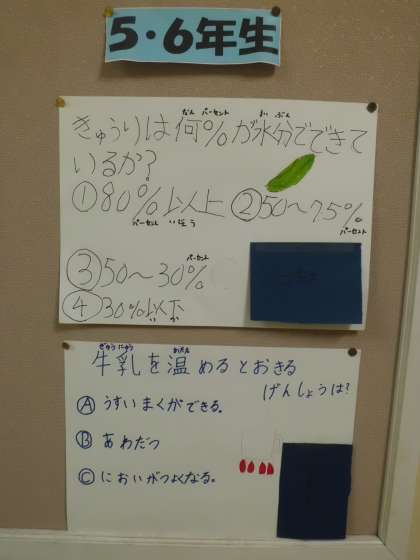 5・6年生
なん パーセント すい ぶん
きゅうりは何%が水分でできて
いるか?
①80%以上 ②50〜75%
パーセント いじょう パーセント
パーセント
③50〜30%
④30%以下
い か
ぎゅうにゅう あたた
牛乳を温めるとおきる
げんしょうは?
Ⓐうすいまくができる。
Ⓑあわだつ
Ⓒにおいがつよくなる。